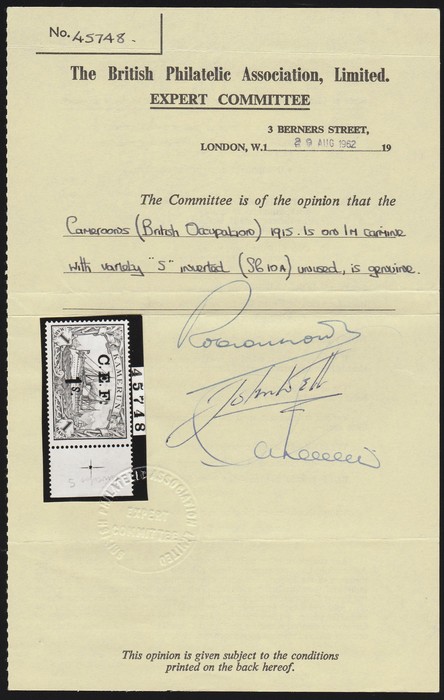 No. 45748.
The British Philatelic Association, Limited.
EXPERT COMMITTEE
3 BERNERS STREET,
LONDON, W.1 29 AUG 1962 19
The Committee is of the opinion that the
Cameroons (British Occupation) 1915. 1s on 1M carmine
with variety "S" inverted (SG 10A) unused, is genuine.
KAMERUN
C.E.F.
1s
45748
BRITISH PHILATELIC ASSOCIATION LIMITED
EXPERT
COMMITTEE
This opinion is given subject to the conditions
printed on the back hereof.